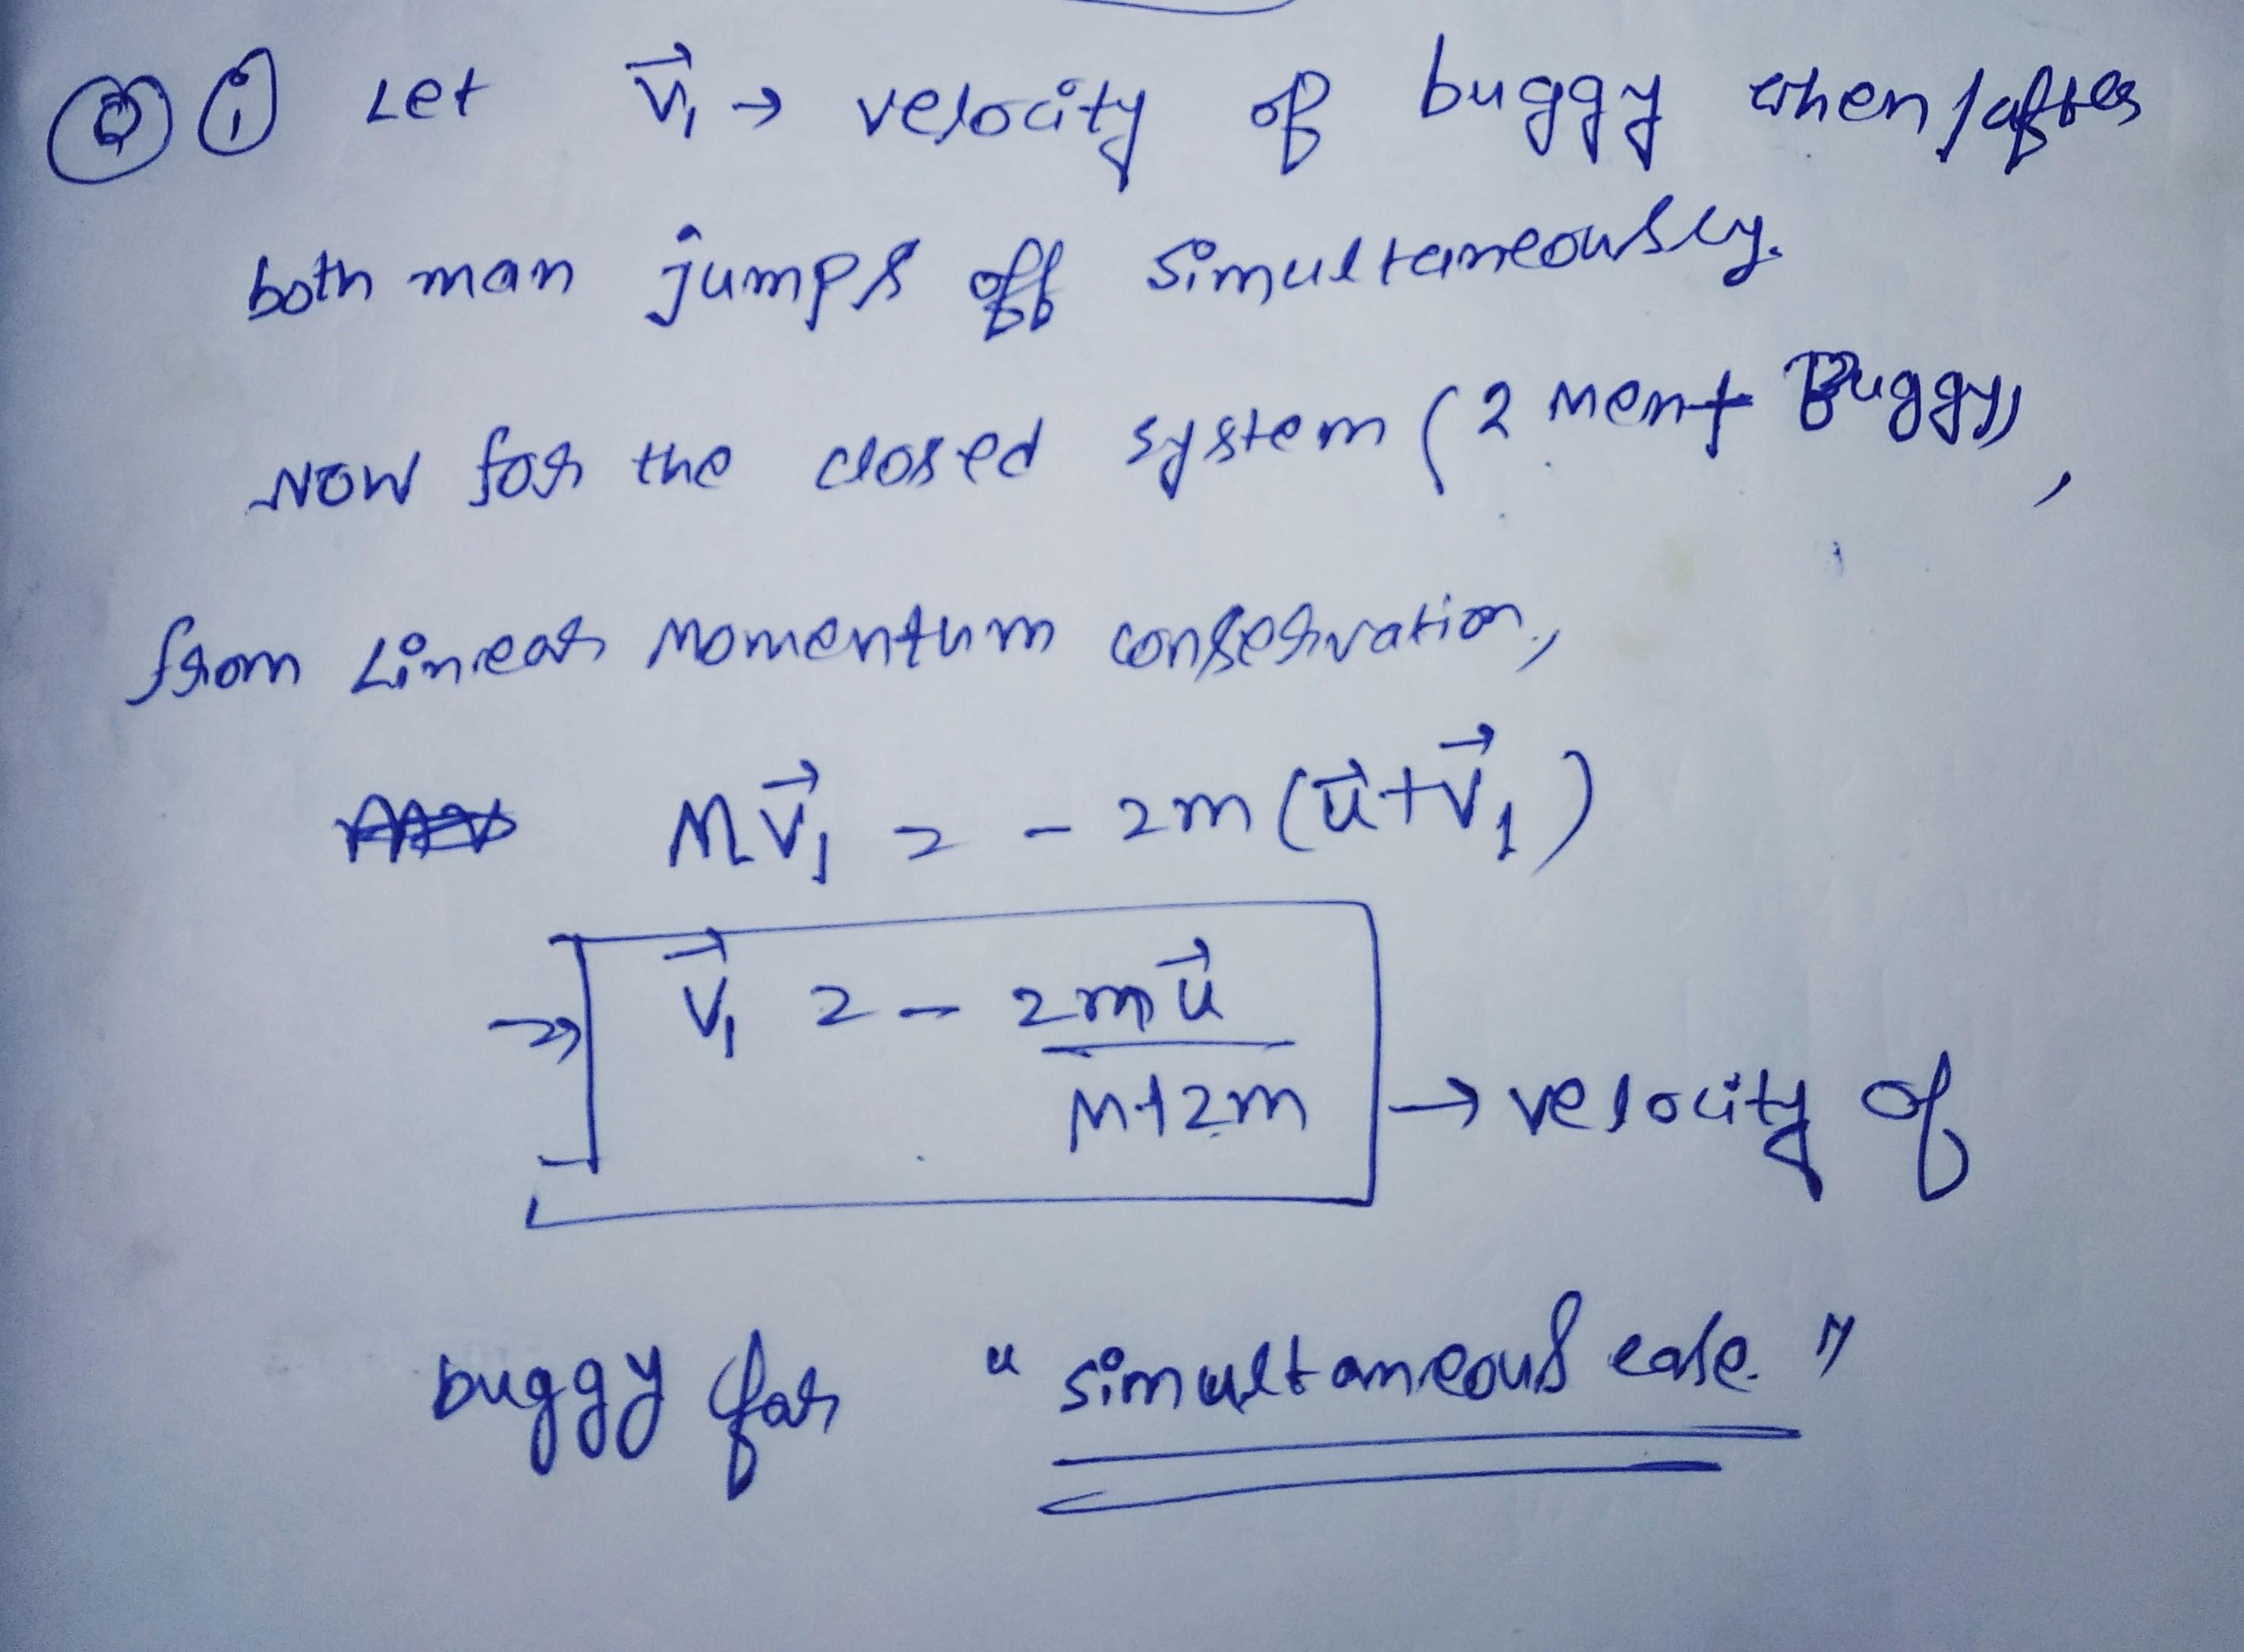 ① Let v⃗₁ → velocity of buggy when/after
both man jumps off simultaneously.
Now for the closed system (2 men + Buggy),
from Linear Momentum conservation,
Mv⃗₁ = - 2m(u⃗+v⃗₁)
⇒ v⃗₁ = - 2mu⃗ / M+2m → velocity of
buggy for "simultaneous case."